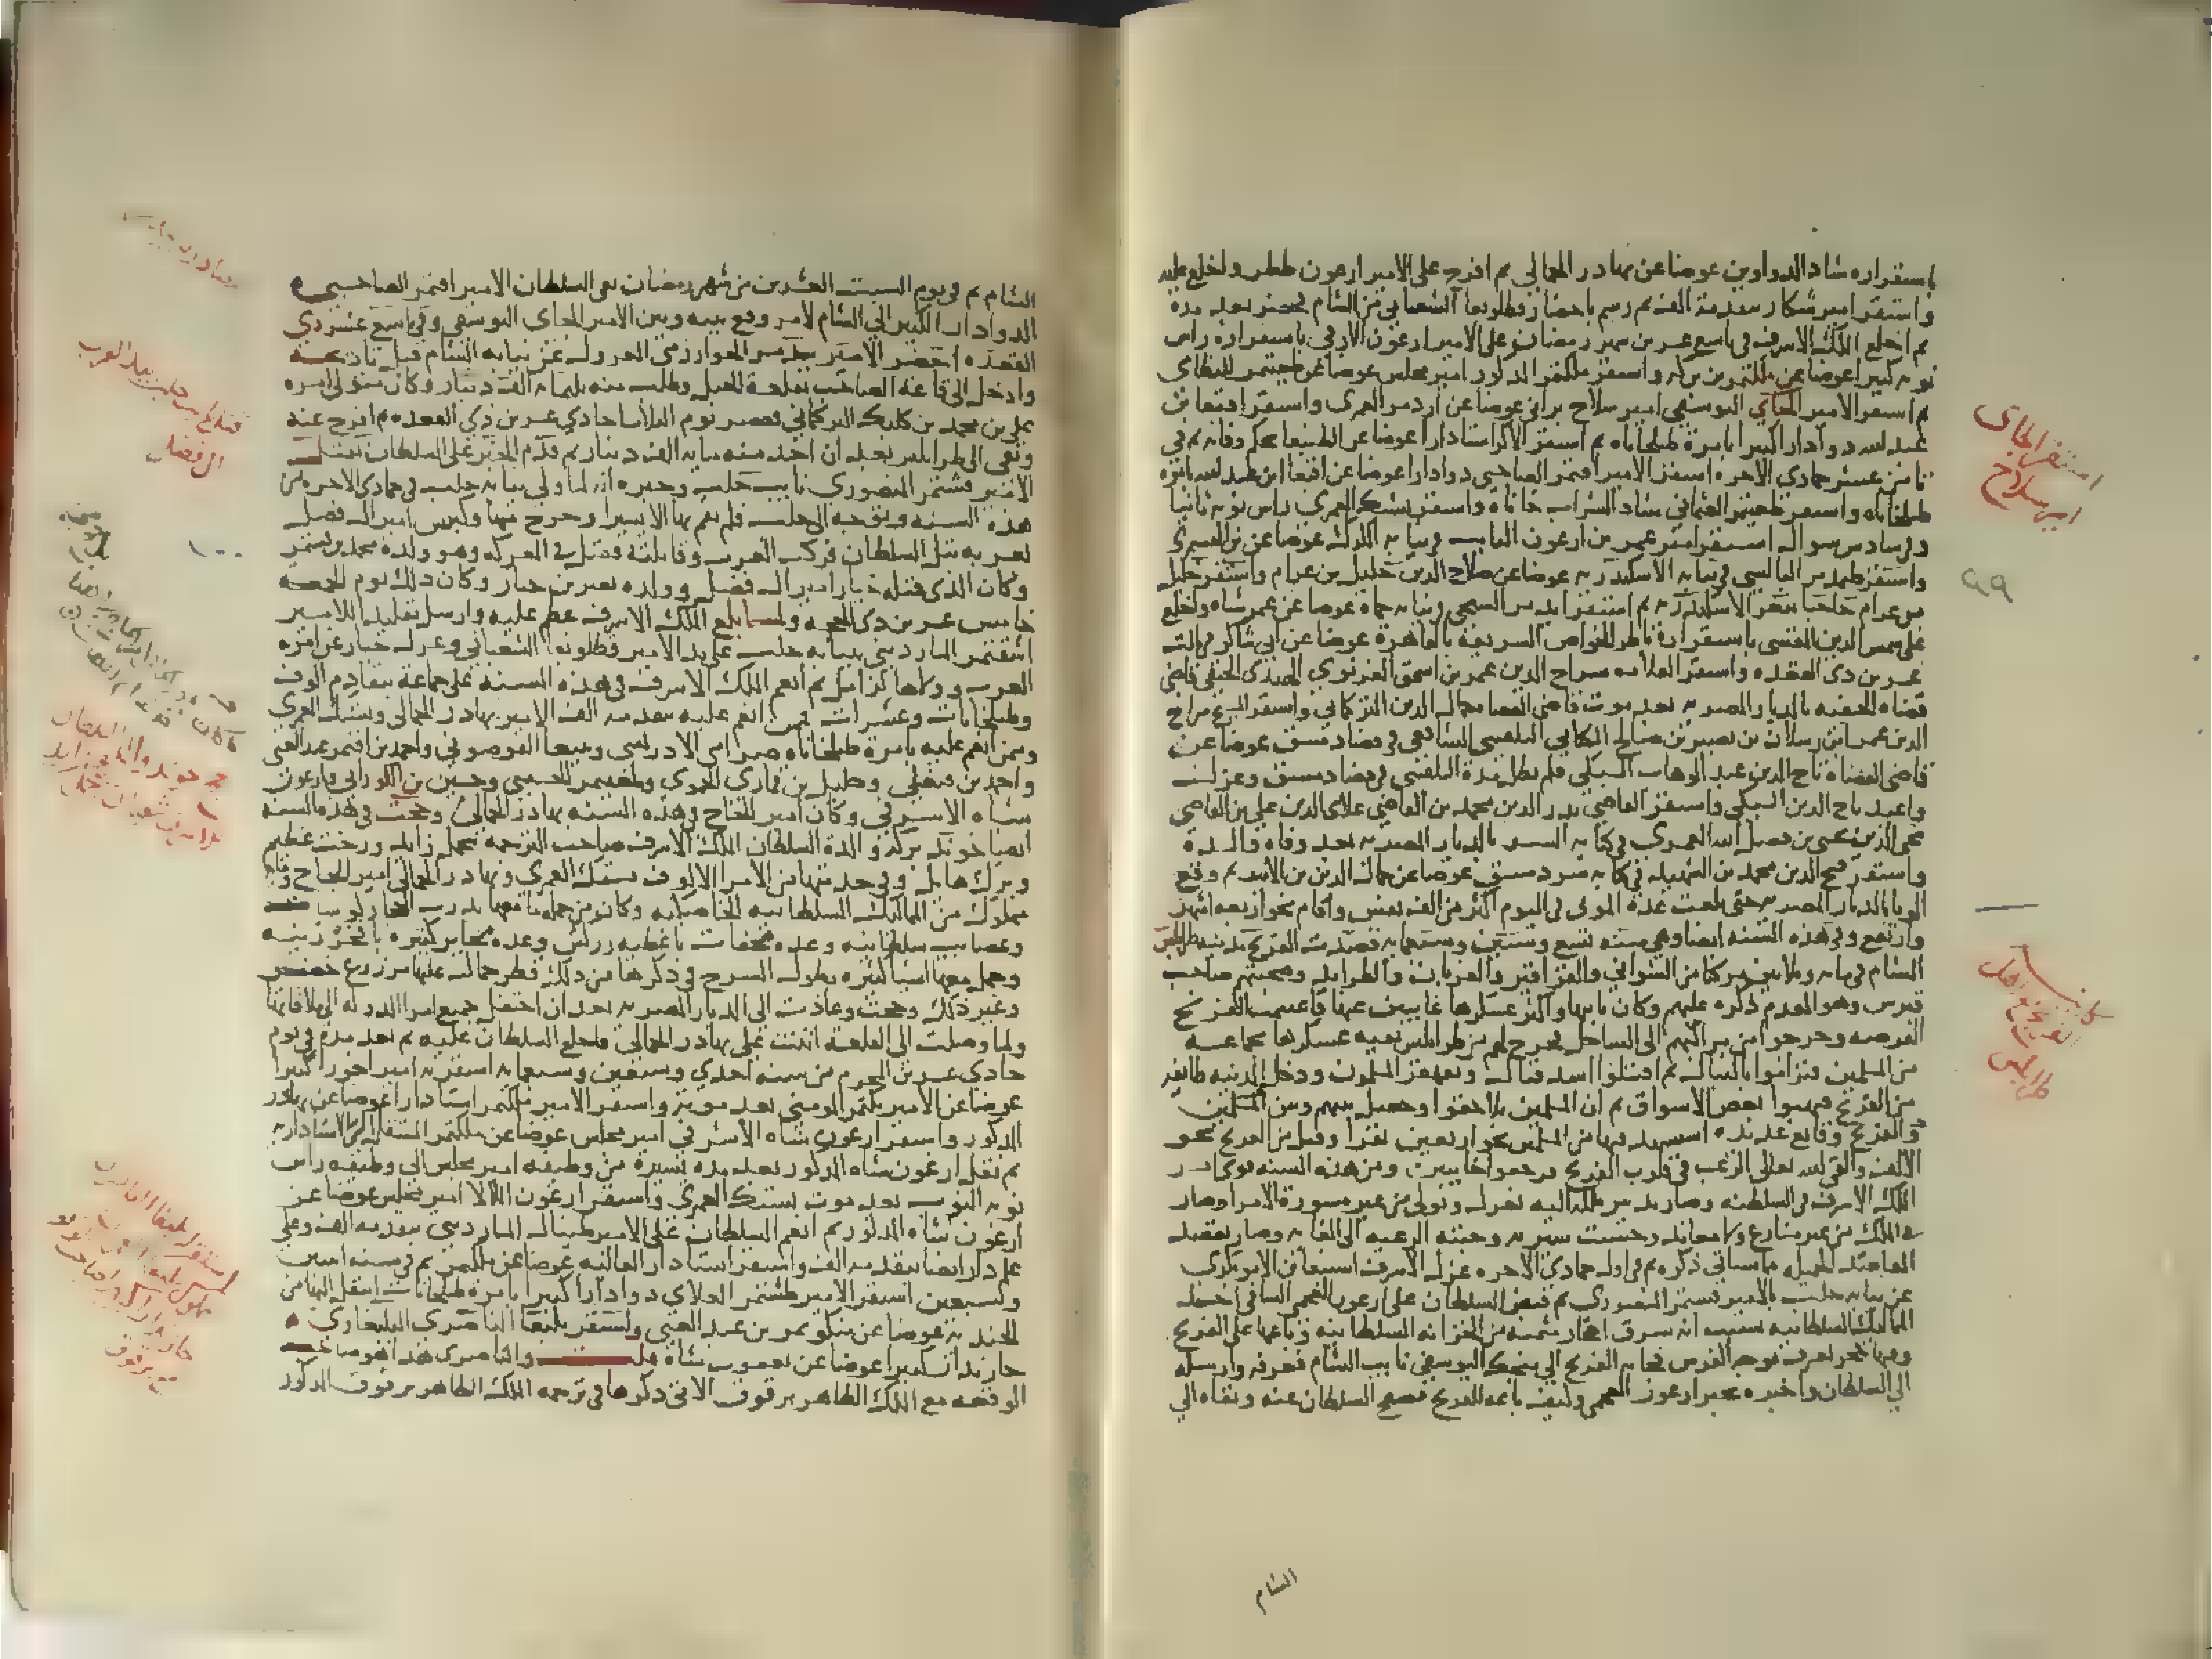 باستقراره شاد الدواوين عوضا عن بهادر الجمالي ثم افرج على الامير ارغون ططر واخلع عليه
واستقر امير شكار بتقدمة الف ثم رسم باحضار قطلوبغا الشعباني من الشام فحضر بعد مدة
ثم اخلع الملك الاشرف في تاسع عشرين شهر رمضان على الامير ارغون الازقي باستقراره راس
نوبة كبيرا عوضا عن ملكتمر بن بركة واستقر ملكتمر المذكور امير مجلس عوضا عن طغيتمر النظامي
ثم استقر الامير الجاي اليوسفي امير سلاح براني عوضا عن ازدمر العمري واستقر اقبغا بن
عبد الله دوادارا كبيرا بامرة طبلخاناه ثم استقر الاكز استادارا عوضا عن الطنبغا بحكم وفاته ثم في
ثامن عشر جمادي الاخرة استقر الامير اقتمر الصاحبي دوادارا عوضا عن اقبغا ابن عبد الله بامرة
طبلخاناه واستقر طغيتمر العثماني شاد الشراب خاناه واستقر بشتك العمري راس نوبة ثانيا
وفي سادس شوال استقر امير عمر بن ارغون النايب في نيابة الكرك عوضا عن بن القشتمري
واستقر طيدمر البالسي في نيابة الاسكندرية عوضا عن صلاح الدين خليل بن عرام واستقر خليل
بن عرام حاجبا بثغر الاسكندرية ثم استقر ايدمر الشيخي في نيابة حماة عوضا عن عمر شاه واخلع
على شمس الدين المقسي باستقراره ناظر الخواص الشريفة بالقاهرة عوضا عن ابي شاكر في ثالث
عشرين ذي القعدة واستقر العلامة سراج الدين عمر بن اسحق الغزنوي الهندي الحنفي قاضي
قضاه الحنفية بالديار المصرية بعد موت قاضي القضاة جمال الدين التركماني واستقر الشيخ سراج
الدين عمر ابن رسلان بن نصير بن صالح الكناني البلقيني الشافعي في قضاء دمشق عوضا عن
قاضي القضاة تاج الدين عبد الوهاب السبكي فلم تطل مدة البلقيني في قضاء دمشق وعزل
واعيد تاج الدين السبكي واستقر القاضي بدر الدين محمد بن القاضي علاى الدين علي بن القاضي
محيي الدين يحيى بن فضل الله العمري في كتابة السر بالديار المصرية بعد وفاة والده
واستقر فتح الدين محمد بن الشهيد في كتابة سر دمشق عوضا عن جمال الدين بن الاثير ثم وقع
الوبا بالديار المصرية حتى بلغت عدة الموتى في اليوم اكثر من الف نفس واقام نحو اربعة اشهر
وارتفع وفي هذه السنه ايضا وهي سنة تسع وستين وسبعمايه قصدت الفرنج مدينة طرابلس
الشام في مايه وثلاثين مركبا من الشواني والقراقير والغربان والطرايد وصحبتهم صاحب
قبرس وهو المقدم ذكره عليهم وكان نايبها واكثر عسكرها غايبين عنها فاغتنمت الفرنج
الفرصه وخرجوا من مراكبهم الى الساحل فخرج لهم من طرابلس بقية عسكرها بجماعة
من المسلمين فتراموا بالنبال ثم اقتتلوا اشد قتال وتقهقر المسلمون ودخل المدينة طايفة
من الفرنج فنهبوا بعض الاسواق ثم ان المسلمين تلاحقوا وحصل بينهم وبين المسلمين
والفرنج وقايع عديده استشهد فيها من المسلمين نحو اربعين نفرا وقتل من الفرنج نحو
الالف والقى الله تعالى الرعب في قلوب الفرنج فرجعوا خايبين ومن هذه السنه قوي امر
الملك الاشرف في السلطنه وصار تدبير ملكه اليه يعزل ويولي من غير مشورة الامرا وصار
في الملك من غير منازع ولا معاند وحسنت سيرته وحبته الرعيه الى الغاية وصار يقصد
المقاصد الجميلة مما سياتي ذكره ثم في اول جمادي الاخرة عزل الاشرف اسنبغا بن الابوبكري
عن نيابة حلب بالامير قشتمر المنصوري ثم قبض السلطان على ارغون العجمي الساقي احد
المماليك السلطانية بسبب انه سرق احجار مثمنة من الخزانة السلطانية وباعها على الفرنج
وفيها حجر يعرف بوجه الفرس فجا به الفرنج الى منجك اليوسفي نايب الشام فعرفه وارسله
الى السلطان واخبره بخبر ارغون العجمي وكيف باعه للفرنج فصفح السلطان عنه ونفاه الى
الشام
استقر الجاي
امير سلاح
٩٩
طرابلس
الشام ثم في يوم السبت العشرين من شهر رمضان نفى السلطان الامير اقتمر الصاحبي
الدوادار الكبير الى الشام لامر وقع بينه وبين الامير الجاي اليوسفي وفي تاسع عشر ذي
القعده احضر الامير بيدمر الخوارزمي المعزول عن نيابة الشام قبل تاريخه
وادخل الى قاعة الصاحب بقلعة الجبل وطلب منه ثلثماية الف دينار وكان متولي امره
علي بن محمد بن كلبك التركماني فعصر يوم الثلاثا حادي عشرين ذي القعده ثم افرج عنه
ونفي الى طرابلس بعد ان اخذ منه ماية الف دينار ثم قدم الخبر على السلطان بقتل
الامير قشتمر المنصوري نايب حلب وخبره انه لما ولي نيابة حلب في جمادي الاخرة من
هذه السنه وتوجه الى حلب فلم يقم بها الا يسيرا وخرج منها وكبس امير ال فضل
بعربه بتل السلطان فركب العرب وقاتلته فقتل في المعركه هو وولده محمد بن قشتمر
وكان الذي قتله حيار امير ال فضل وولده نعير بن حيار وكان ذلك يوم الجمعة
خامس عشرين ذي الحجة ولما بلغ الملك الاشرف عظم عليه وارسل تقليدا للامير
اشقتمر المارديني بنيابة حلب على يد الامير قطلوبغا الشعباني وعزل حيار عن امرة
العرب وولاها لزامل ثم انعم الملك الاشرف في هذه السنة على جماعة بتقادم الوف
وطبلخانات وعشرات فمن انعم عليه بتقدمة الف الامير بهادر الجمالي وبشتك العمري
وممن انعم عليه بامرة طبلخاناه صراي الادريسي وبيبغا القوصوني واحمد بن اقتمر عبد الغني
واحمد بن قنغلي وخليل بن قماري الحموي وطغيتمر الحسيني وحسين بن الكوراني وارغون
شاه الاشرفي وكان امير الحاج في هذه السنه بهادر الجمالي وحجت في هذه السنه
ايضا خوند بركة والدة السلطان الملك الاشرف صاحب الترجمه بتجمل زايد ورخت عظيم
وبرك هايل وفي خدمتها من الامرا الالوف بشتك العمري وبهادر الجمالي امير الحاج وماية
مملوك من المماليك السلطانيه الخاصكية وكان من جملة ما معها بدرب الحجاز كوسات
وعصايب سلطانيه وعدة محفات باغطية زركش وعدة محاير كثيره بافخر زينه
وحمل معها اشيا كثيره يطول الشرح في ذكرها من ذلك قطر جمال عليها مزروع خضر
وغير ذلك وحجت وعادت الى الديار المصرية بعد ان احتفل جميع امرا الدولة الى ملاقاتها
ولما وصلت الى القلعة اثنت على بهادر الجمالي فاخلع السلطان عليه ثم بعد مدة في يوم
حادي عشرين المحرم من سنة احدي وسبعين وسبعماية استقر به امير اخورا كبيرا
عوضا عن الامير بكتمر المومني بعد موته واستقر الامير تلكتمر استادارا عوضا عن بهادر
المذكور واستقر ارغون شاه الاشرفي امير مجلس عوضا عن تلكتمر المنتقل الى الاستاداريه
ثم نقل ارغون شاه المذكور بعد مدة يسيرة من وظيفة امير مجلس الى وظيفه راس
نوبة النوب بعد موت بشتك العمري واستقر ارغون اللالا امير مجلس عوضا عن
ارغون شاه المذكور ثم انعم السلطان على الامير طينال المارديني بتقدمه الف وعلى
علم دار ايضا بتقدمه الف واستقر استادار العاليه عوضا عن تلكتمر ثم في سنه اثنين
وسبعين استقر الامير طشتمر العلاي دوادارا كبيرا بامرة طبلخانات انتقل اليها من
الجنديه عوضا عن منكوتمر بن عبد الغني واستقر يلبغا الناصري اليلبغاوي
خازندارا كبيرا عوضا عن يعقوب شاه قلت والناصري هذا هو صاحب
الوقعه مع الملك الظاهر برقوق الاتي ذكرها في ترجمه الملك الظاهر برقوق المذكور
١٠٠